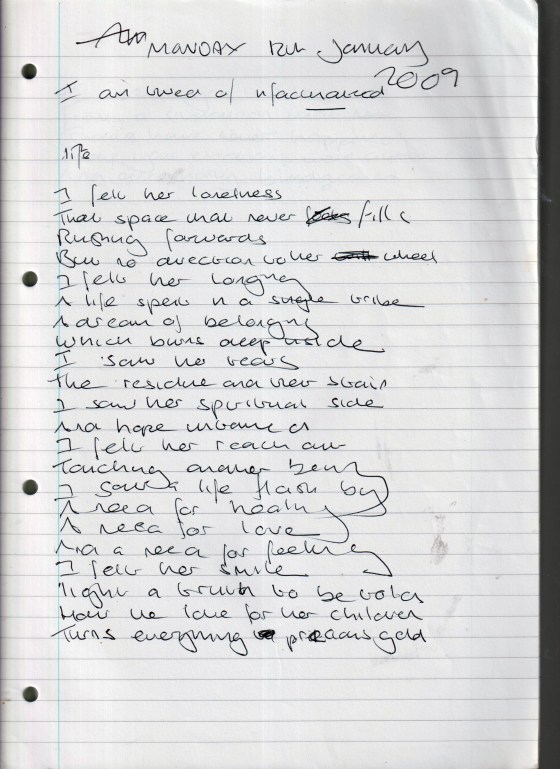 Monday 12th January
2009
I am tired of
life
I felt her loneliness
That space that never fills
Rushing forwards
But no direction to her wheel
I felt her longing
A life spent in a single tribe
A dream of belonging
Which burns deep inside
I saw her tears
The residue and their stain
I saw her spiritual side
And hope
I felt her reach out
Touching another being
I saw a life flash by
A need for healing
A need for love
And a need for feeling
I felt her smile
light a truth to be told
How the love for her children
Turns everything precious gold